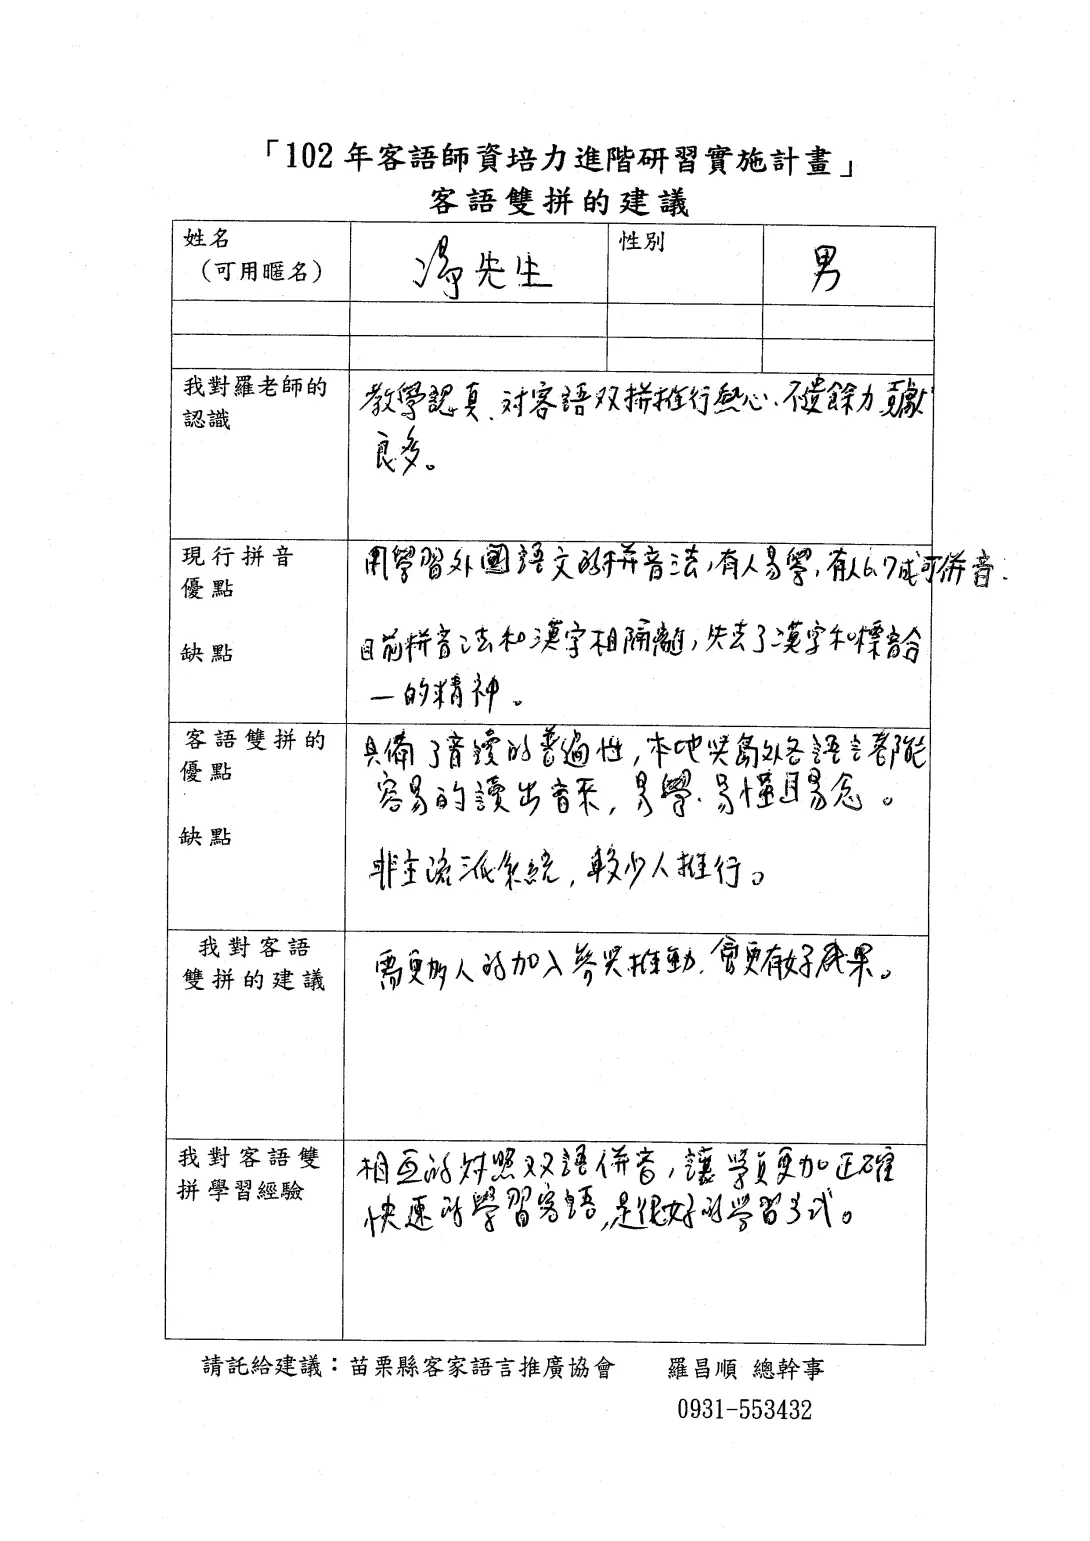 「102 年客語師資培力進階研習實施計畫」
客語雙拼的建議
姓名
（可用暱名）
馮先生
性別
男
我對羅老師的
認識
教學認真、對客語双拼推行熱心、不遺餘力貢獻
良多。
現行拼音
優點
用學習外國語文的拼音法，有人易學，有人6.7成可併音．
缺點
目前拼音法和漢字相隔離，失去了漢字和標音合
一的精神。
客語雙拼的
優點
具備了音讀的普遍性，本地與島外各語言都能
容易的讀出音來，易學、易懂且易念。
缺點
非主流派系統，較少人推行。
我對客語
雙拼的建議
需更多人的加入參與推動、會更有好成果。
我對客語雙
拼學習經驗
相互的對照双語併音，讓學員更加正確
快速的學習客語，是很好的學習方式。
請託給建議：苗栗縣客家語言推廣協會 羅昌順 總幹事
0931-553432